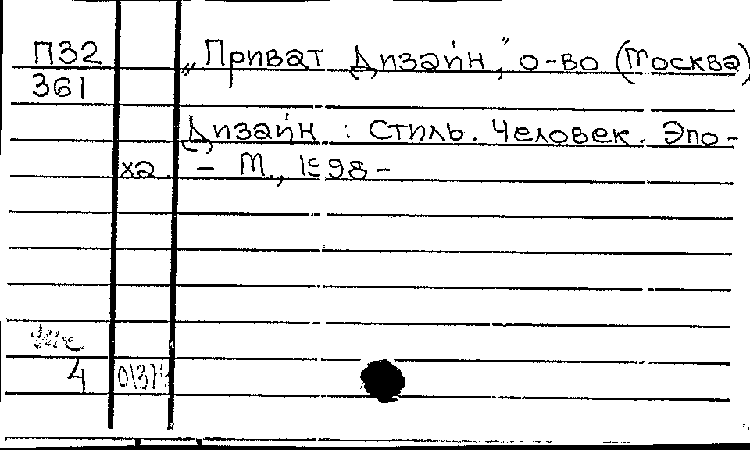 П32 „Приват Дизайн," о-во (Москва)
361
Дизайн : Стиль. Человек. Эпо-
ха. – М., 1998 –
4